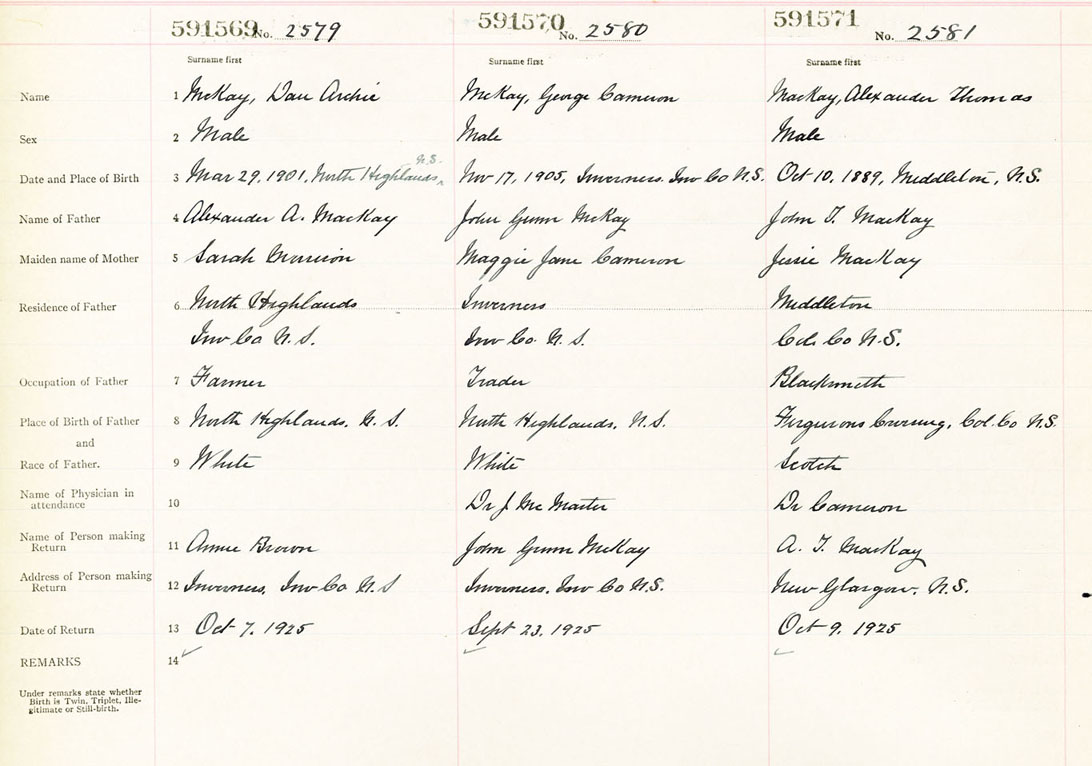 591569 No. 2579 591570 No. 2580 591571 No. 2581
Surname first Surname first Surname first
Name 1 McKay, Dan Archie McKay, George Cameron MacKay, Alexander Thomas
Sex 2 Male Male Male
N.S.
Date and Place of Birth 3 Mar 29, 1901, North Highlands, Nov 17, 1905, Inverness. Inv Co N.S. Oct 10, 1889, Middleton, N.S.
Name of Father 4 Alexander A. MacKay John Gunn McKay John T. MacKay
Maiden name of Mother 5 Sarah Morrison Maggie Jane Cameron Jessie MacKay
Residence of Father 6 North Highlands Inverness Middleton
Inv Co N.S. Inv Co. N.S. Col. Co N.S.
Occupation of Father 7 Farmer Trader Blacksmith
Place of Birth of Father 8 North Highlands, N.S. North Highlands, N.S. Fergusons Crossing, Col. Co N.S.
and
Race of Father. 9 White White Scotch
Name of Physician in
attendance 10 Dr J McMaster Dr Cameron
Name of Person making
Return 11 Annie Brown John Gunn McKay A. T. MacKay
Address of Person making
Return 12 Inverness, Inv Co N.S Inverness. Inv Co N.S. New Glasgow, N.S.
Date of Return 13 Oct 7, 1925 Sept 23, 1925 Oct 9, 1925
REMARKS 14
Under remarks state whether
Birth is Twin, Triplet, Ille-
gitimate or Still-birth.